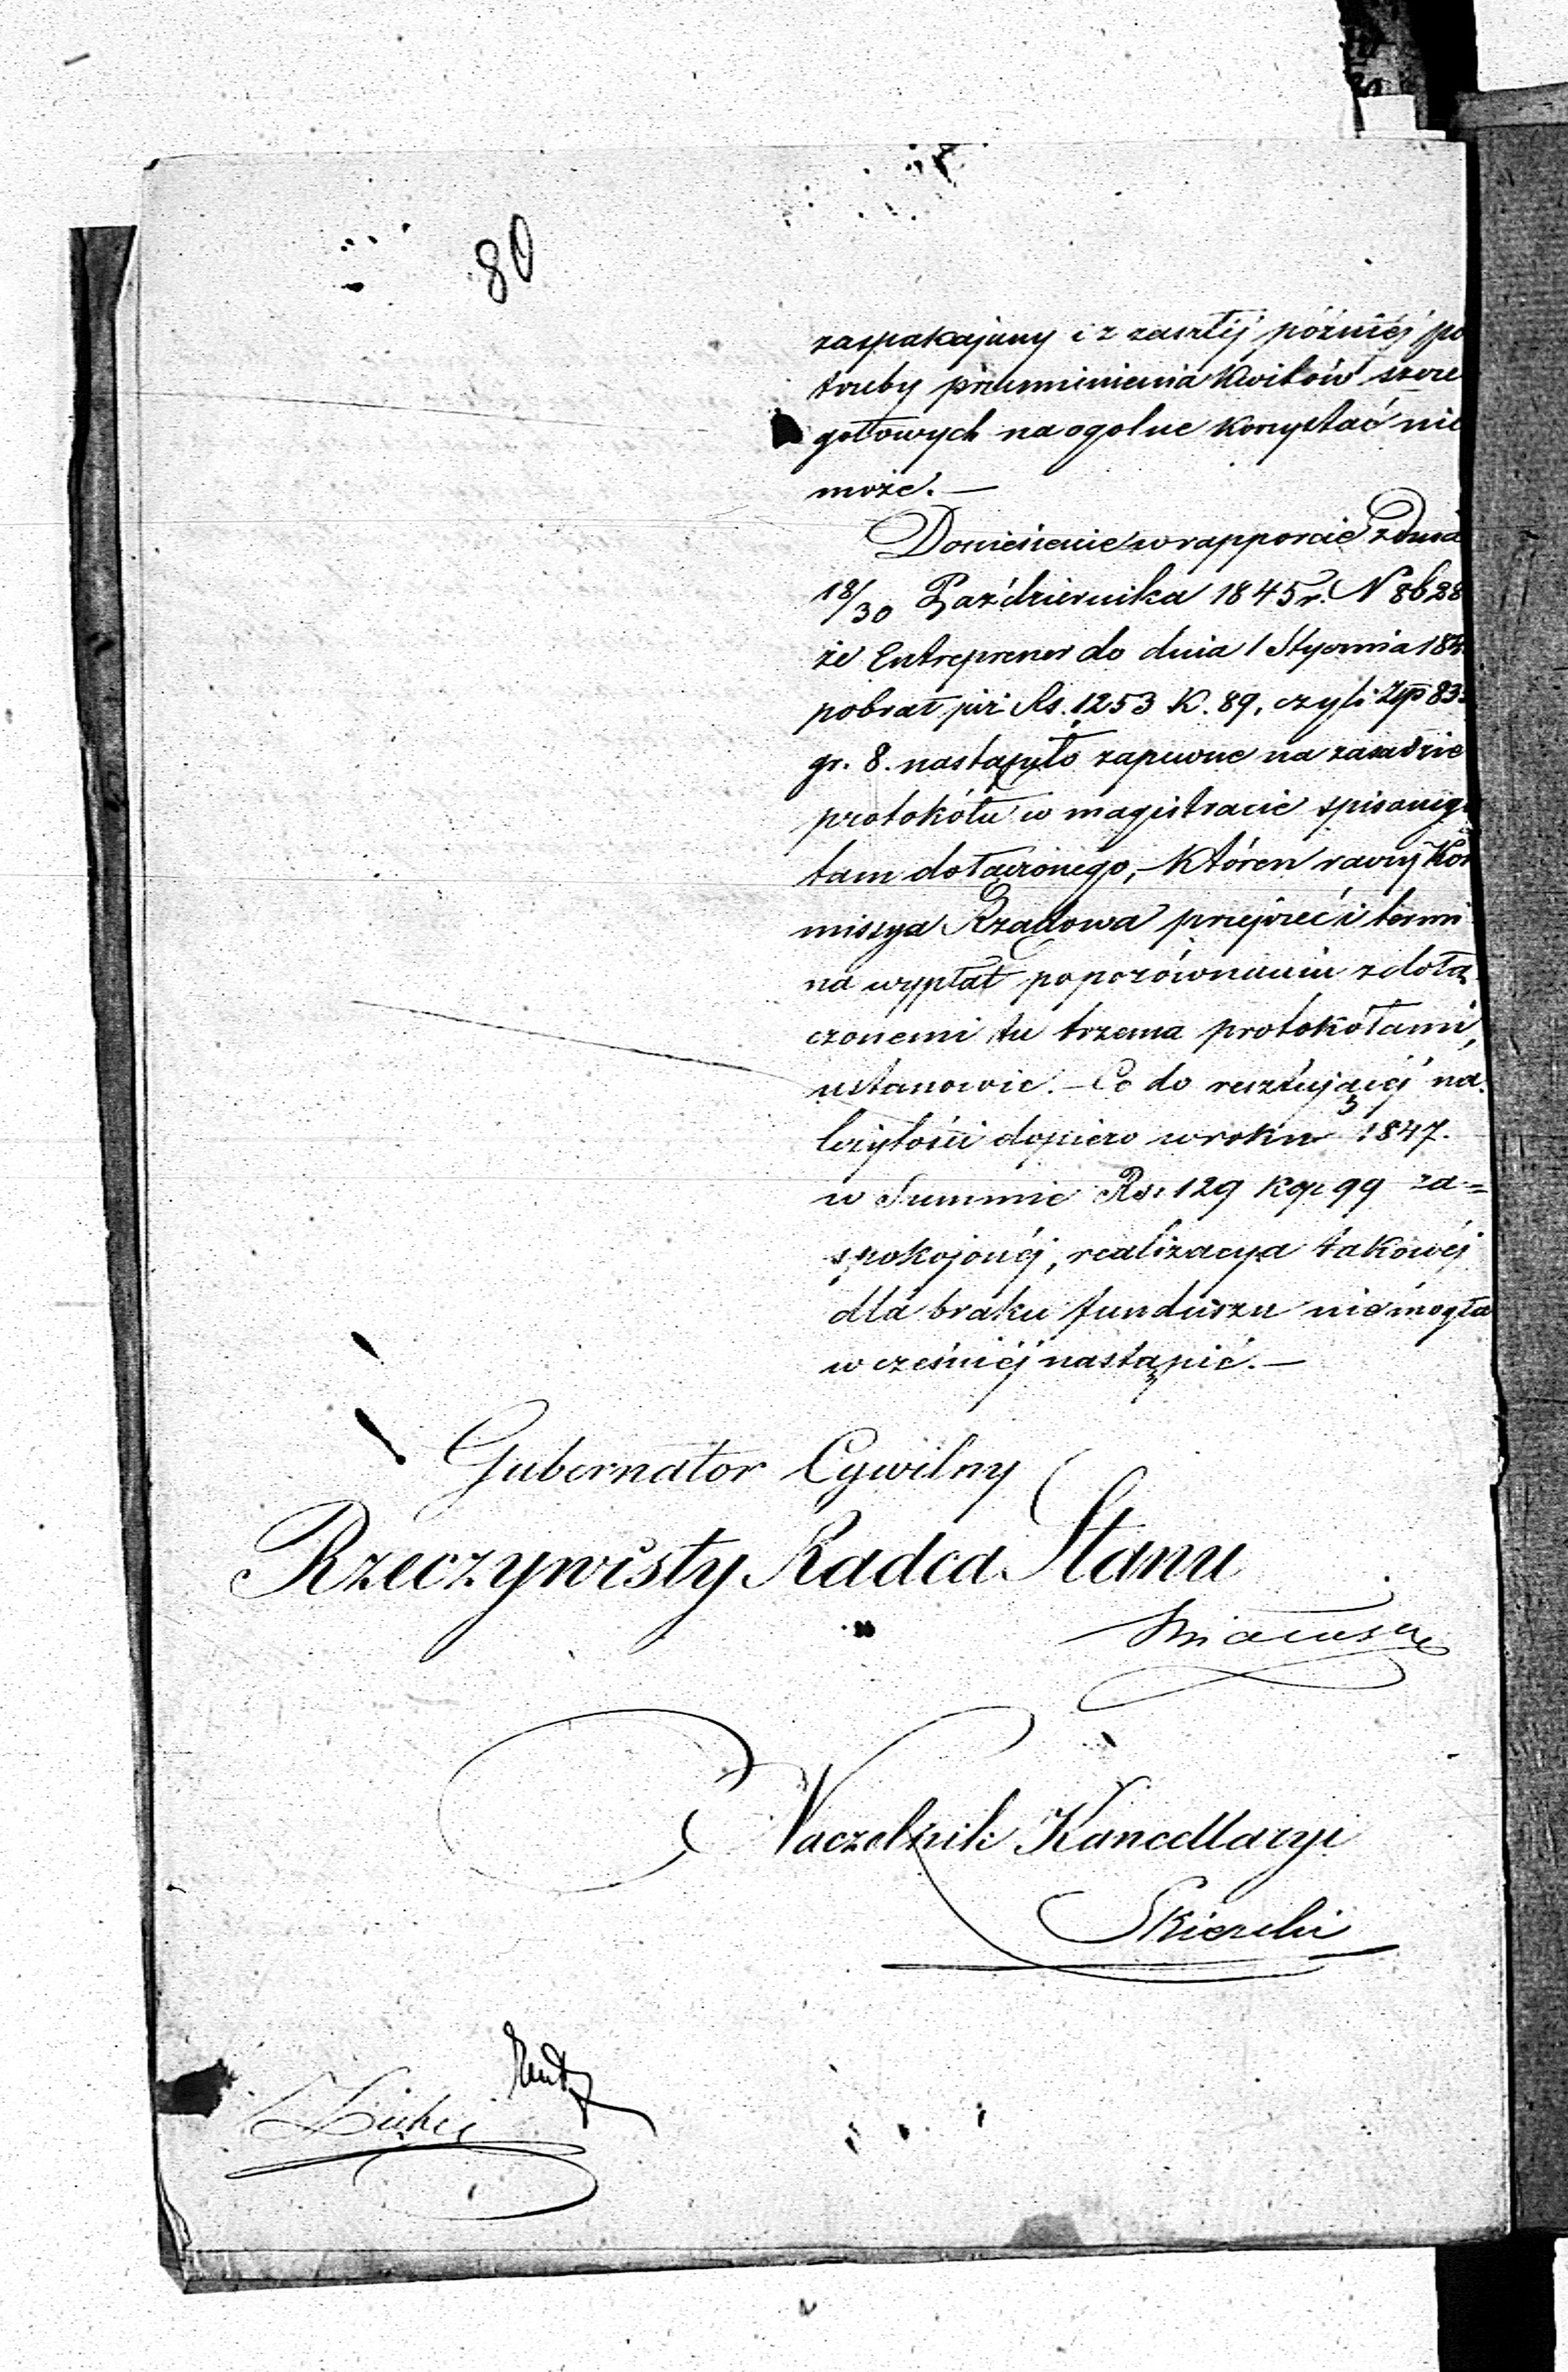 80
zaspakajany i z zaszłéj późniéj po
trzeby przemienienia Kwitów szcze
gołowych na ogolne Korzystać nie
może. —
Doniesienie w rapporcie z dnia
18/30 Października 1845 r. N 8628
że Entreprener do dnia 1 Stycznia 184
pobrał już Rs. 1253 K. 89, czyli Złp 83
gr. 8. nastąpiło zapewne na zasadzie
protokółu w magistracie spisanego
tam dołączonego, - Któren raczy Kom
missya Rządowa przejrzeć i termi
na wypłat po porównaniu z dołą
czonemi tu trzema protokółami,
ustanowić. — Co do resztującéj na
leżytości dopiero w roku 1847.
w Summie Rs. 129 kop 99 za=
spokojonéj, realizacya takowéj
dla braku funduszu nie mogła
wcześniéj nastąpić. —
Gubernator Cywilny
Rzeczywisty Radca Stanu
Naczelnik Kancellaryi